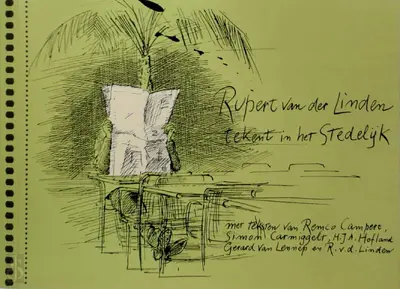 Rupert van der Linden
tekent in het Stedelijk
met teksten van Remco Campert,
Simon Carmiggelt, H.J.A. Hofland
Gerard van Lennep en R.v.d. Linden